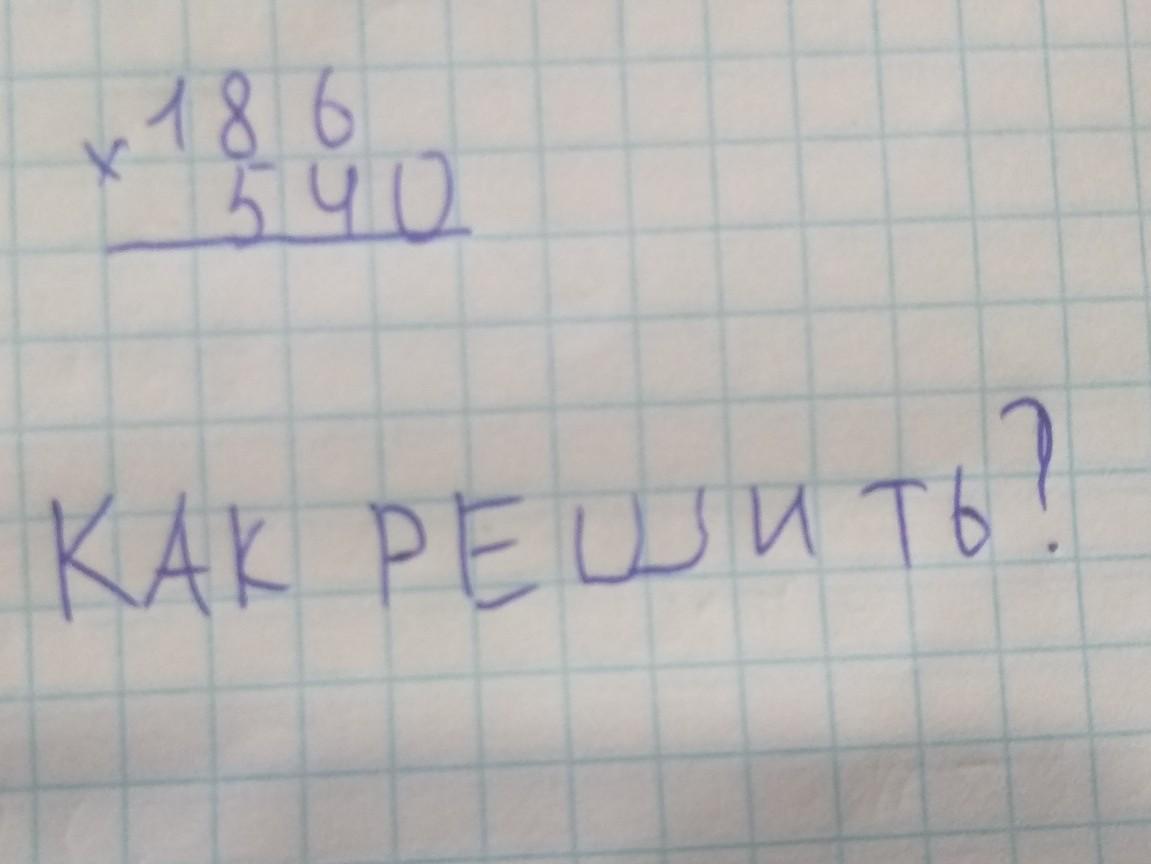 ×186
540
КАК РЕШИТЬ?